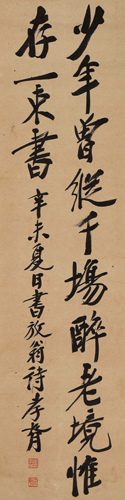 少年曾縱千場醉老境惟
存一束書
辛未夏日書放翁詩孝胥